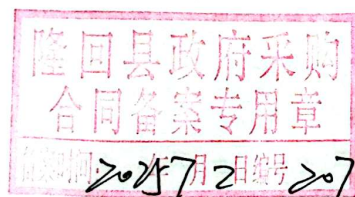 隆回县政府采购
合同备案专用章
备案时间 2025 7月2日编号 207